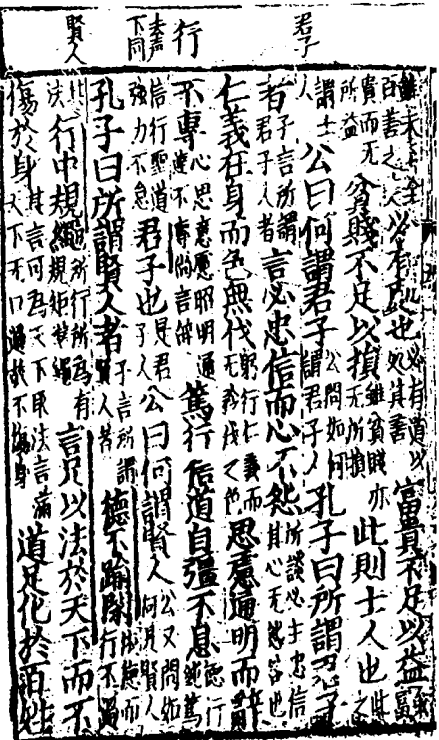 君子
行 去声下同
賢人
必有處也 必有道以處其善 富貴不足以益
貴而无所益 貧賤不足以損 雖貧賤亦无所損 此則士人也
謂士人 公曰何謂君子 公問如何謂君子人 孔子曰所謂君子
者 子言所謂君子人者 言必忠信而心不怨 所談必主忠信其心无怨咎也
仁義在身而色無伐 躬行仁義而无矜伐之色 思慮通明而辭
不專 心思意慮昭明通達不專尚言辞 篤行信道自彊不息 德行純篤
信行聖道強力不怠 君子也 是君子人 公曰何謂賢人 公又問如何是賢人
孔子曰所謂賢人者 子言所謂賢人者 德不踰閑 德而行不過
法 行中規繩 所行所為有規矩準繩 言足以法於天下而不
傷於身 其言可為天下取法言滿天下无口過故不傷身 道足化於百姓